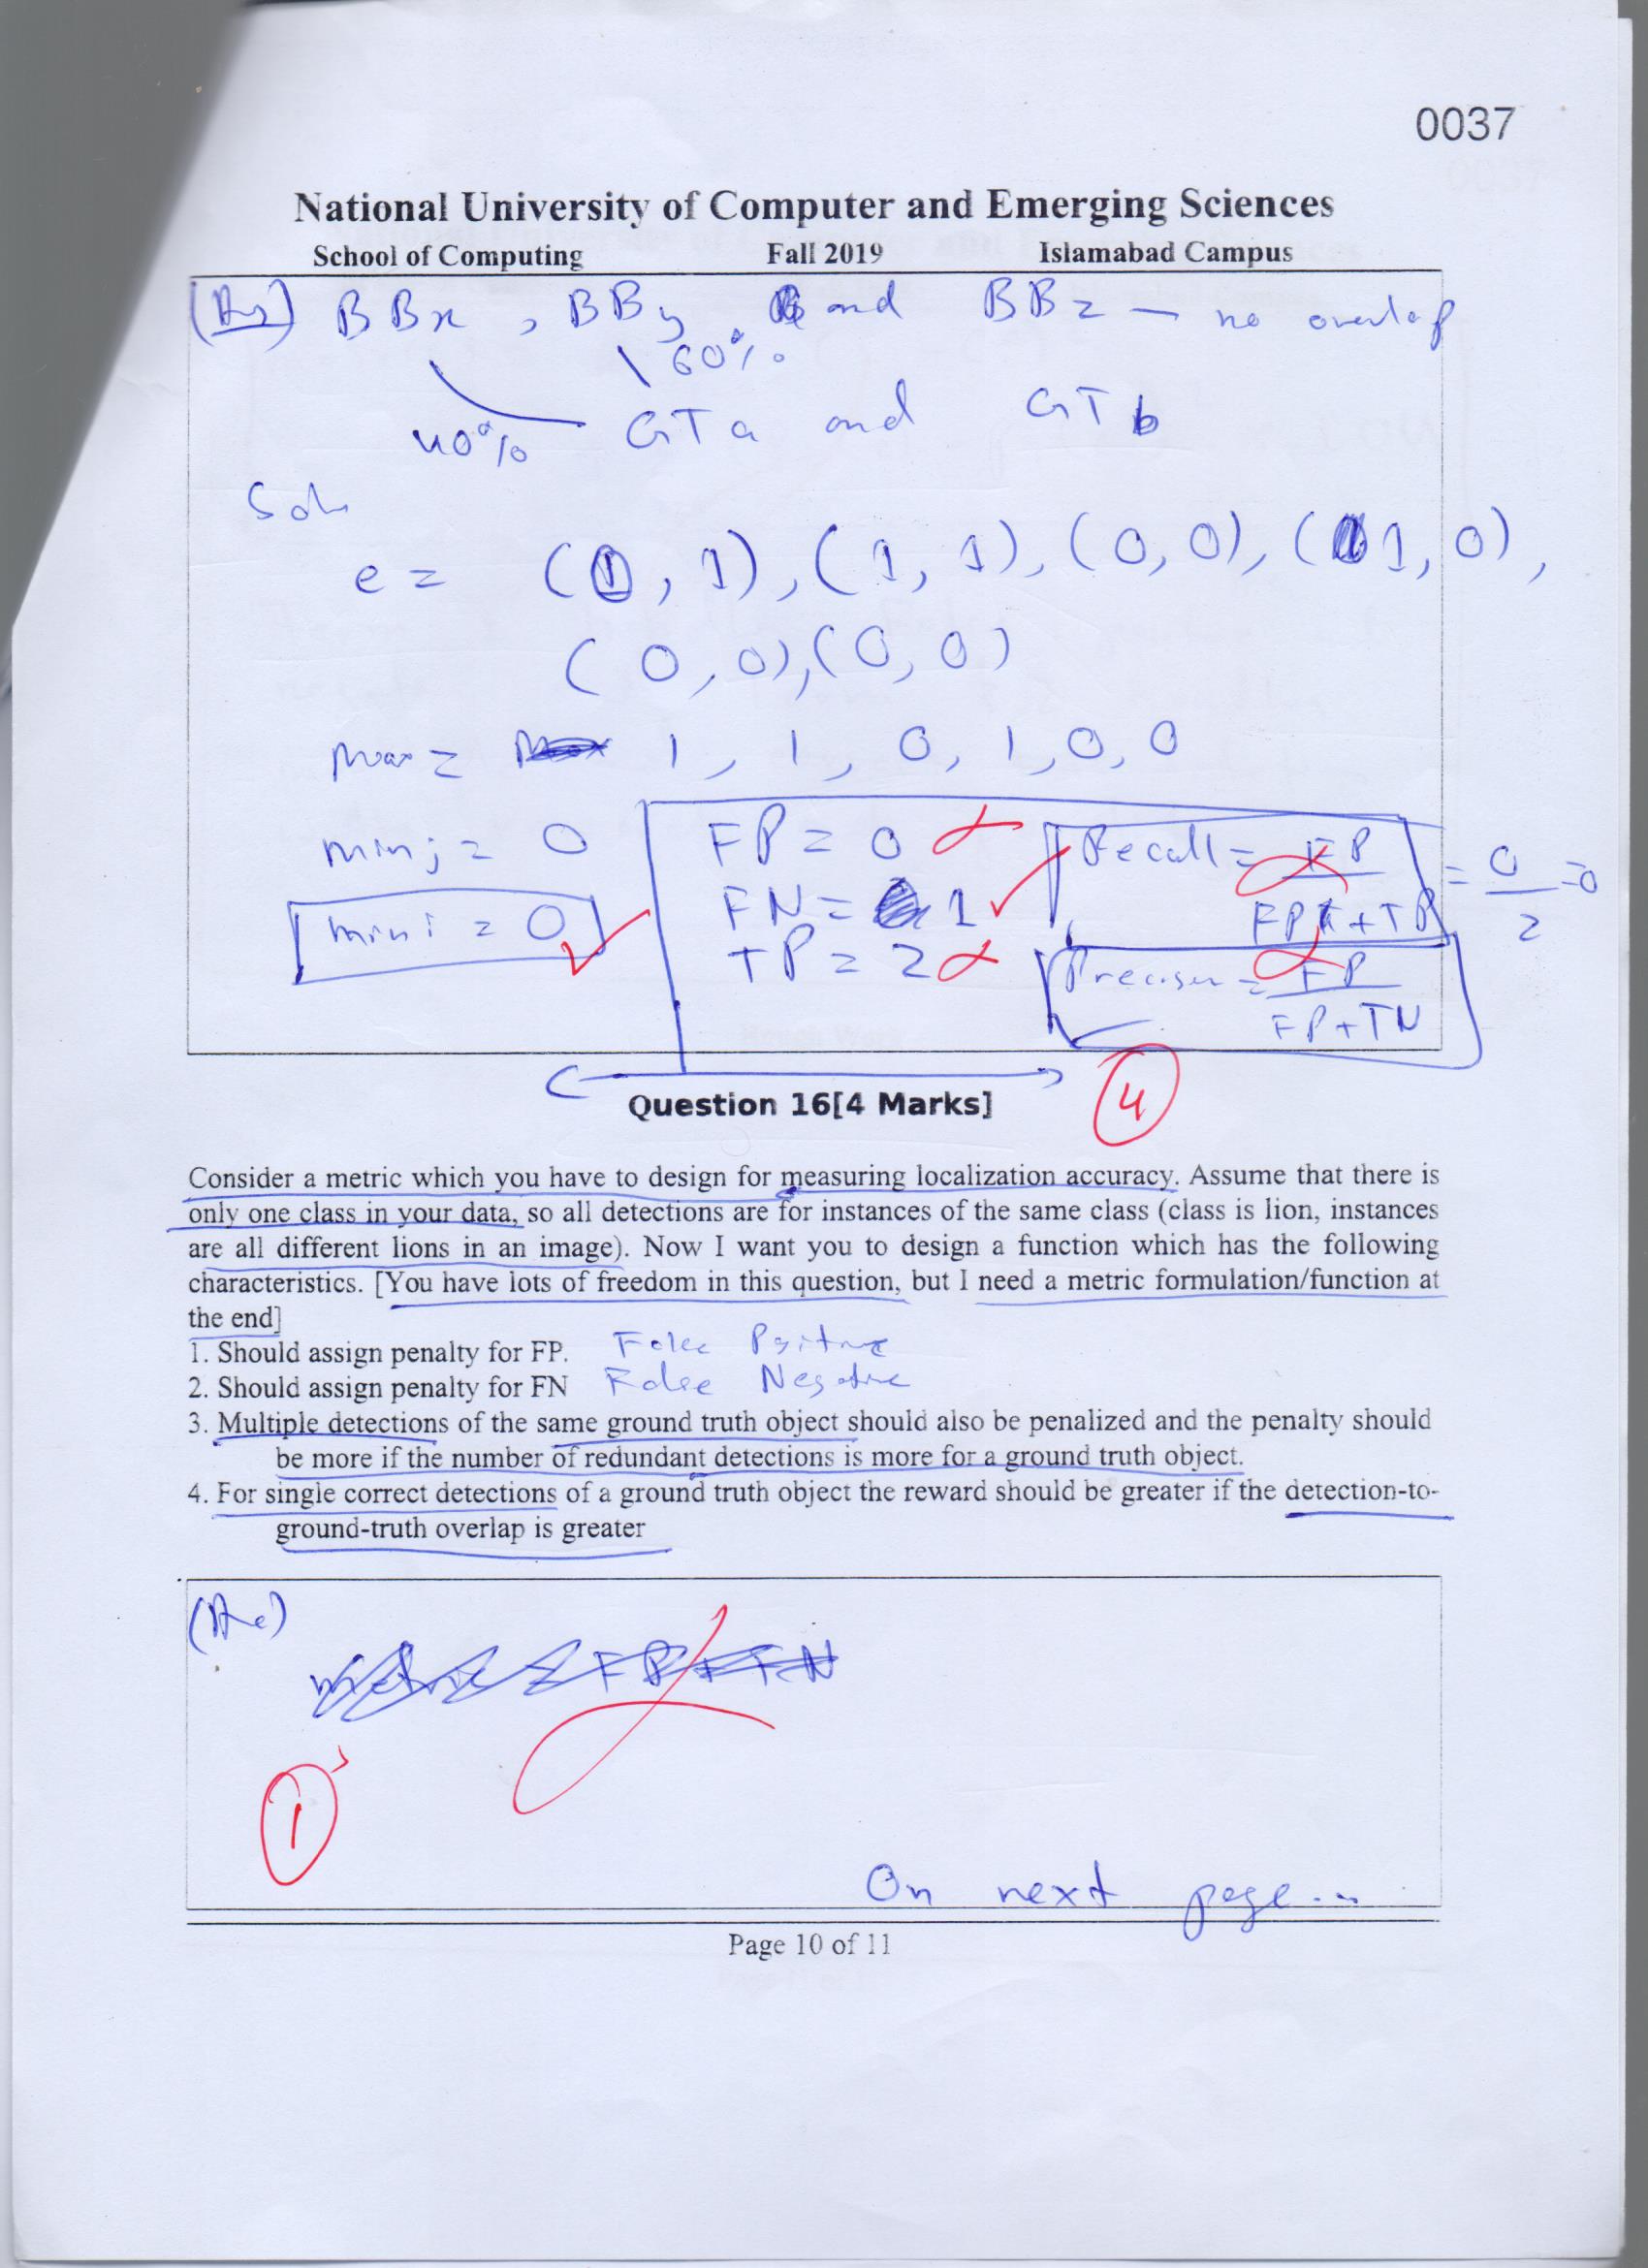 0037
National University of Computer and Emerging Sciences
School of Computing Fall 2019 Islamabad Campus
(Ans) BBx , BBy and BBz — no overlap
60%
40% GTa and GTb
Soln
e = (1, 1), (1, 1), (0, 0), (1, 0),
(0, 0), (0, 0)
max = 1, 1, 0, 1, 0, 0
min j = 0
min i = 0
FP = 0
FN = 1
TP = 2
Recall = FP / FP + TP = 0/2 = 0
Precision = FP / FP + TN
Question 16[4 Marks]
4
Consider a metric which you have to design for measuring localization accuracy. Assume that there is
only one class in your data, so all detections are for instances of the same class (class is lion, instances
are all different lions in an image). Now I want you to design a function which has the following
characteristics. [You have lots of freedom in this question, but I need a metric formulation/function at
the end]
1. Should assign penalty for FP. False Positive
2. Should assign penalty for FN False Negative
3. Multiple detections of the same ground truth object should also be penalized and the penalty should
be more if the number of redundant detections is more for a ground truth object.
4. For single correct detections of a ground truth object the reward should be greater if the detection-to-
ground-truth overlap is greater
(Ans)
metric = FP + FN
1
On next page...
Page 10 of 11